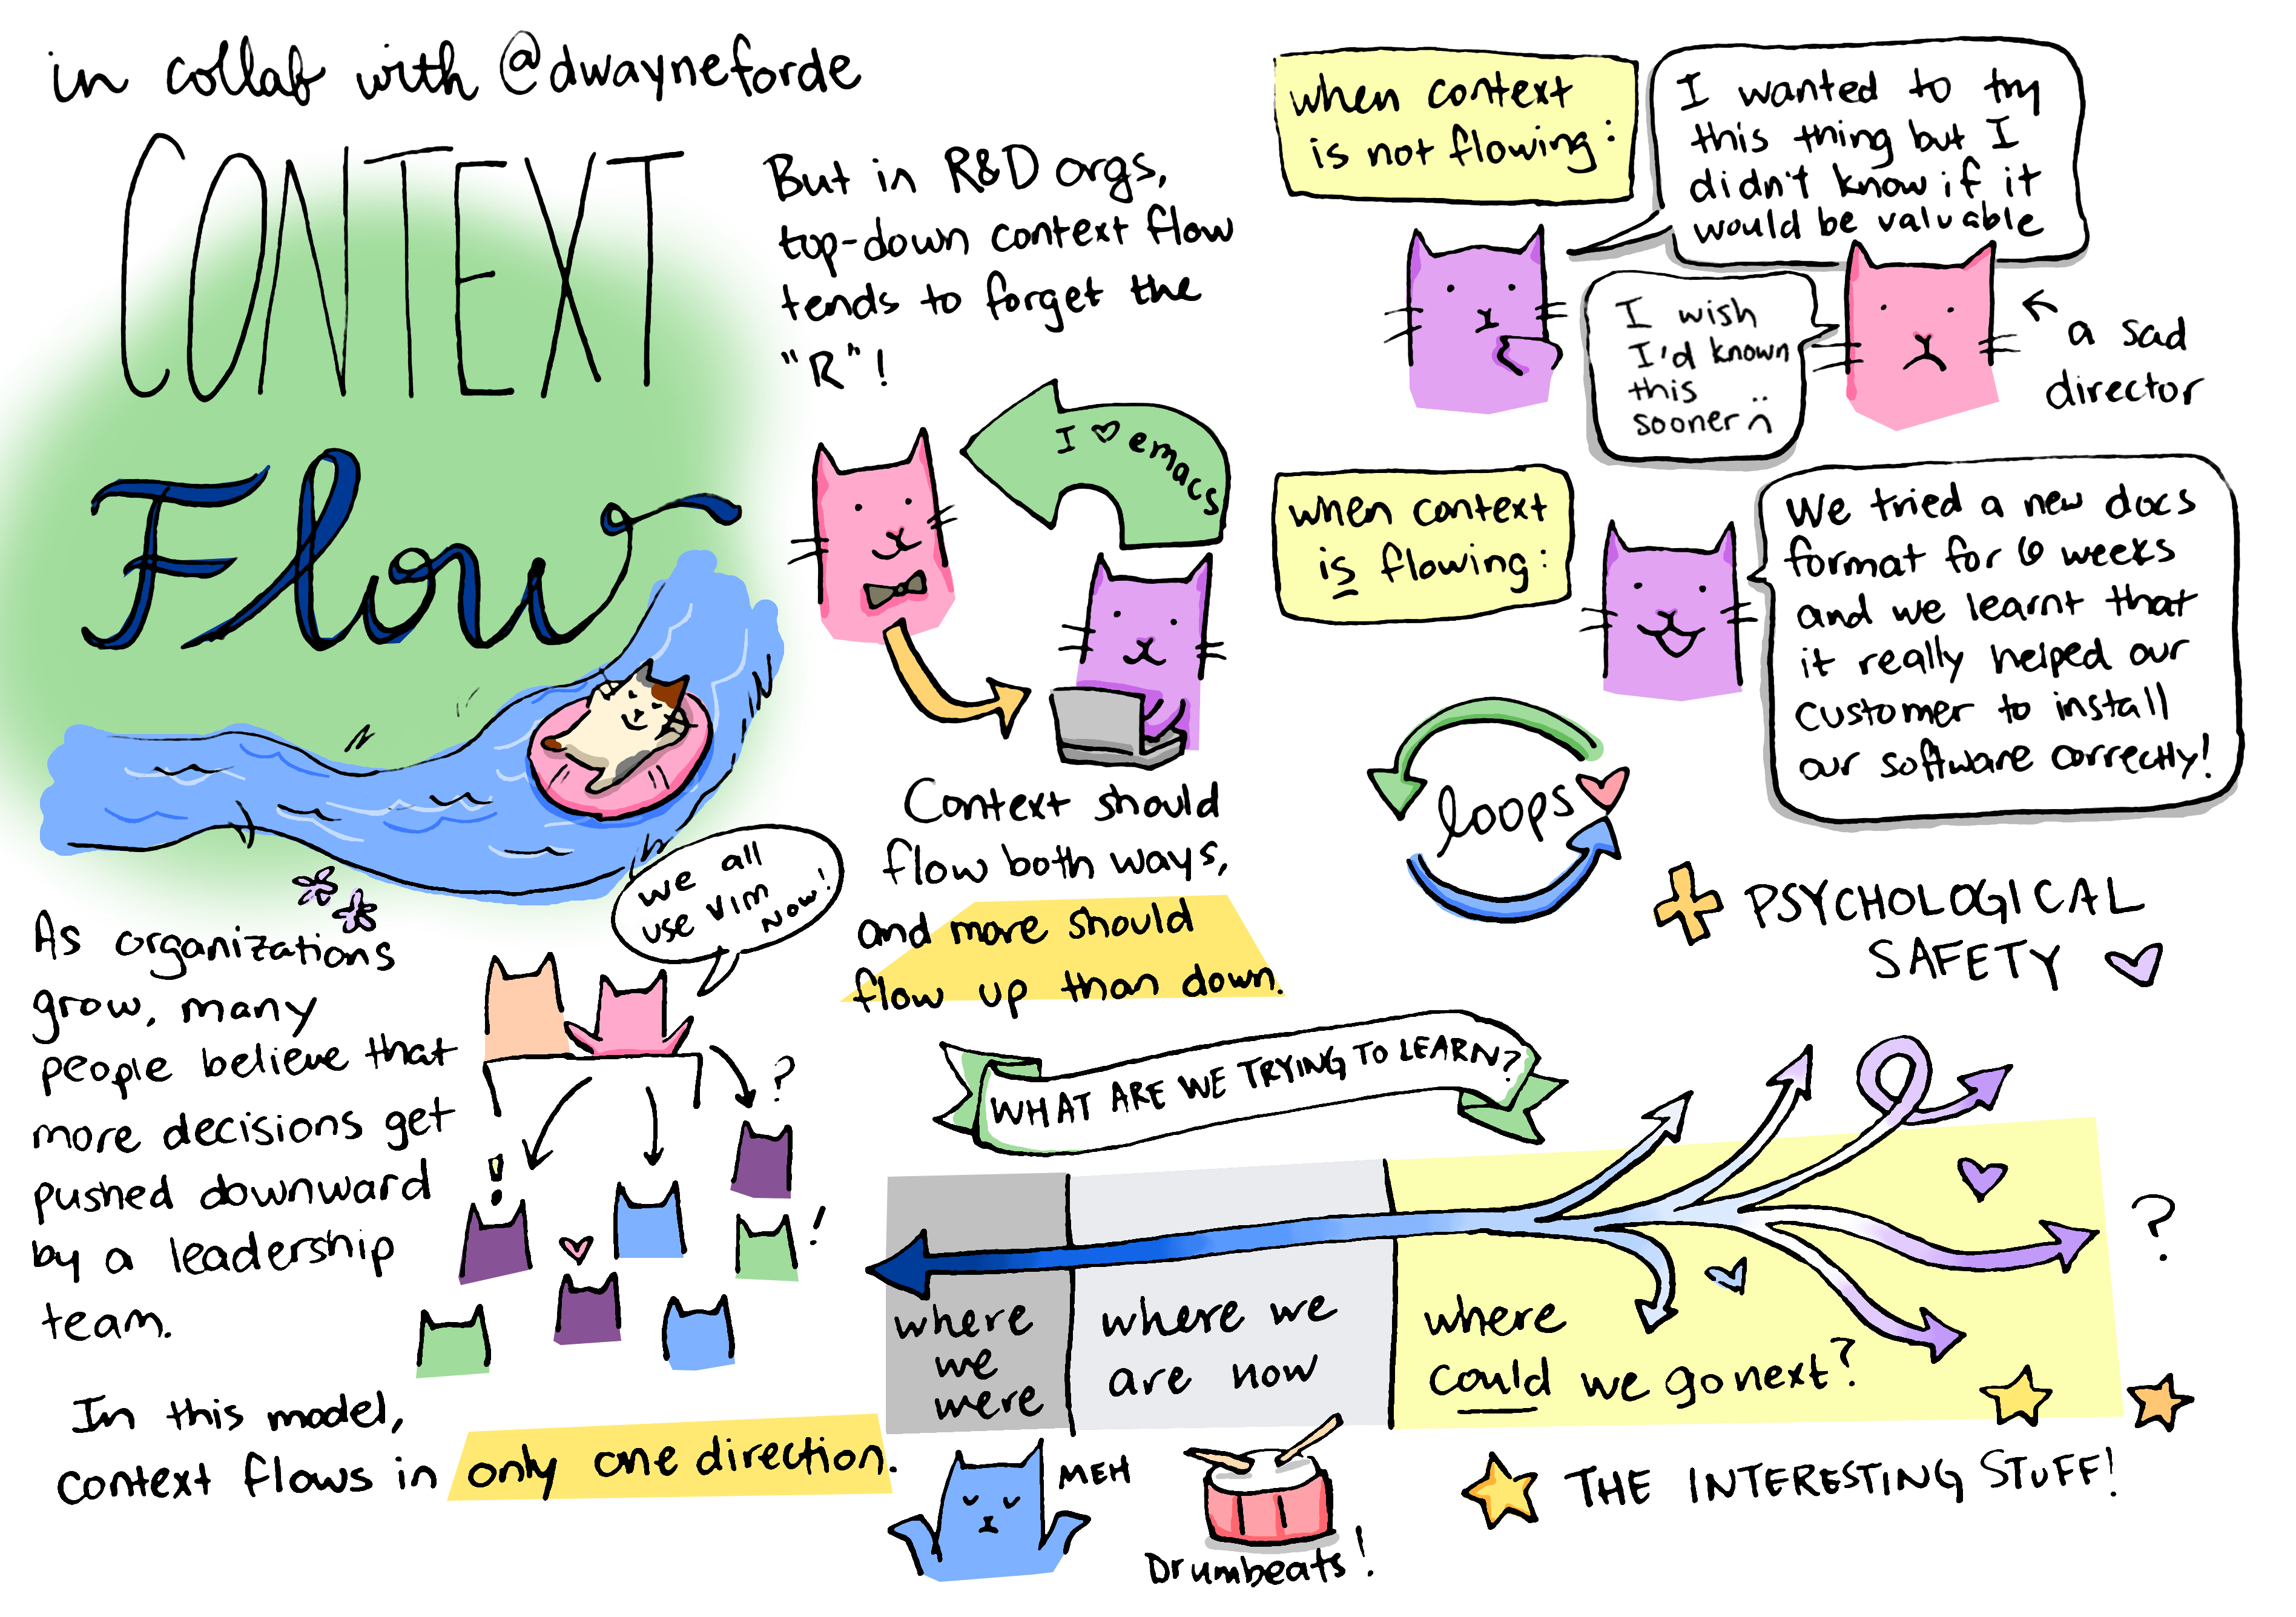 in collab with @dwayneforde
CONTEXT
Flow
As organizations
grow, many
people believe that
more decisions get
pushed downward
by a leadership
team.
we all
use vim
now!
?
!
!
In this model,
context flows in only one direction.
But in R&D orgs,
top-down context flow
tends to forget the
"R"!
I ♡ emacs
Context should
flow both ways,
and more should
flow up than down.
when context
is not flowing:
I wanted to try
this thing but I
didn't know if it
would be valuable
I wish
I'd known
this
sooner :(
a sad
director
when context
is flowing:
We tried a new docs
format for 6 weeks
and we learnt that
it really helped our
customer to install
our software correctly!
loops
+ PSYCHOLOGICAL
SAFETY
WHAT ARE WE TRYING TO LEARN?
where
we
were
where we
are now
where
could we go next?
?
MEH
Drumbeats!
THE INTERESTING STUFF!